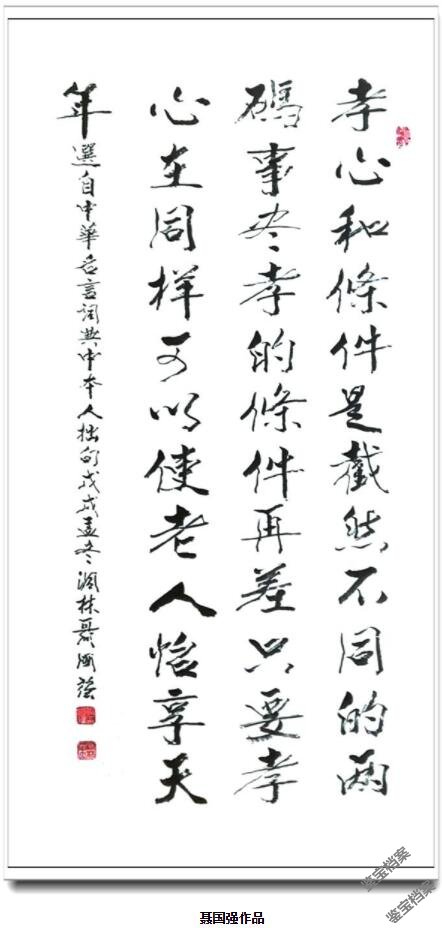 孝心和條件是截然不同的兩
碼事尽孝的條件再差只要孝
心在同样可以使老人怡享天
年
選自中華名言词典中本人拙句戊戌孟冬 聂國强
鉴宝档案
鉴宝档案
聂国强作品